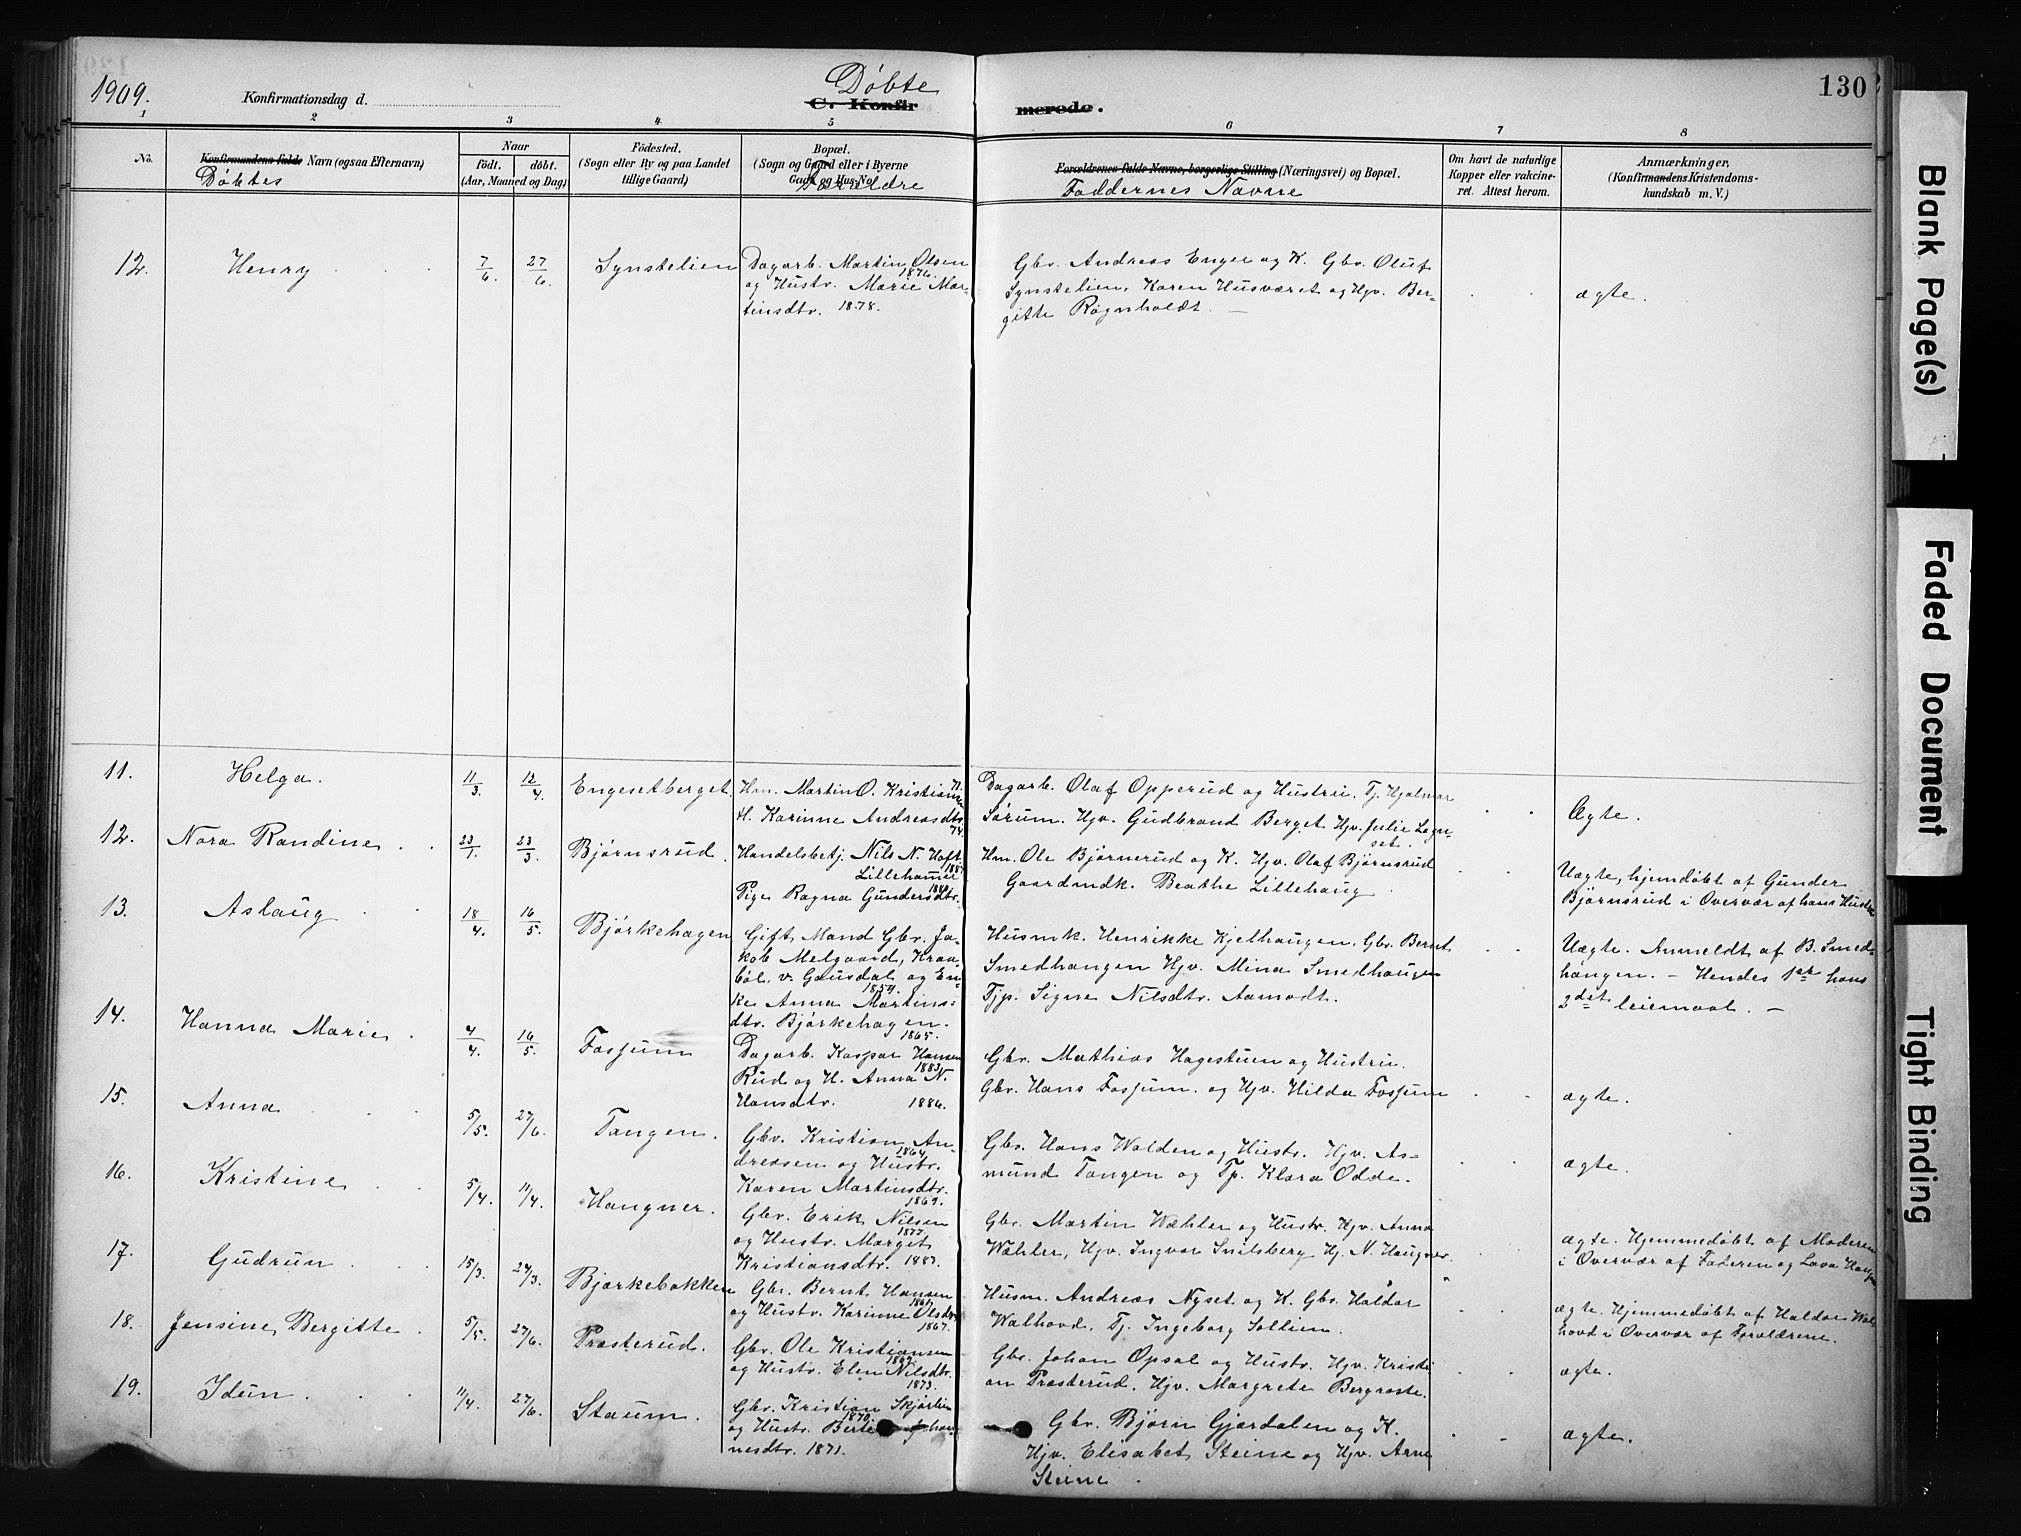 1909.
Konfirmationsdag d.
Døbte
C. Konfirmerede.
130
1 2 3 4 5 6 7 8
No.
Konfirmandens fulde Navn (ogsaa Efternavn)
Døbtes
Naar
født. døbt.
(Aar, Maaned og Dag)
Fødested.
(Sogn eller By og paa Landet
tillige Gaard)
Bopæl.
(Sogn og Gaard eller i Byerne
Gade og Hus-No.)
Forældre
Forældrenes fulde Navne, borgerlige Stilling (Næringsvei) og Bopæl.
Faddernes Navne
Om havt de naturlige
Kopper eller vakcine-
ret. Attest herom.
Anmærkninger.
(Konfirmandens Kristendoms-
kundskab m. V.)
12. Henry 7/6. 27/6. Synstelien
Dagarb. Martin Olsen
1876.
og Hustr. Marie Mar-
tinsdtr. 1878.
Gbr. Andreas Enger og K. Gbr. Oluf
Synstelien, Karen Husværet og Hjv. Ber-
gitte Rognholdt. —
ægte.
11. Helga. 11/3. 12/4. Engesetberget.
Hm. Martin O. Kristiansen
H. Karinne Andreasdtr.
74
Dagarb. Olaf Opperud og Hustru. Tj. Hjalmar
Sørum. Hjv. Gudbrand Berget Hjv. Julie Logn-
set.
Ægte.
12. Nora Randine 23/1. 23/3. Bjørnsrud
Handelsbetj. Nils N. Hoft.
Lillehamer
Pige Ragna Gundersdtr.
Hm. Ole Bjørnerud og K. Hjv. Olaf Bjørnsrud
Gaardmdk. Beathe Lillehaug
Uægte, hjemdøbt af Gunder
Bjørnsrud i Overvær af hans Hustru
13. Aslaug 18/4. 16/5. Bjørkehagen
Gift Mand Gbr. Ja-
kob Melgaard, Kraa-
bøl. v. Gausdal og En-
1859.
ke Anna Martins-
dtr. Bjørkehagen.
1865.
Husmk. Henrikke Kjelhaugen, Gbr. Bernt
Smedhaugen Hjv. Mina Smedhaugen
Tjp. Signe Nilsdtr. Aamodt.
Uægte. Anmeldt af B. Smed-
haugen. — Hendes 1ste hans
2det leiemaal. —
14. Hanna Marie 4/4. 16/5. Fossum
Dagarb. Kaspar Hansen
1883.
Rud og H. Anna N.
Hansdtr. 1886.
Gbr. Mathias Hagestuen og Hustru.
Gbr. Hans Fossum. og Hjv. Hilda Fossum
ægte.
15. Anna 5/5. 27/6. Tangen.
Gbr. Kristian An-
1864
dreasen og Hustr.
Karen Martinsdtr.
1869.
Gbr. Hans Walden og Hustr. Hjv. As-
mund Tangen og Tp. Klara Odde.
ægte.
16. Kristine 5/4. 11/4. Haugner.
Gbr. Erik Nilsen
1877
og Hustr. Marget
Kristiansdtr. 1883.
Gbr. Martin Wæhler og Hustr. Hjv. Anna
Wæhler, Hjv. Ingvar Snilsberg Hj. N. Haugner.
ægte. Hjemmedøbt af Moderen
i Overvær af Faderen og Lava Haugn
17. Gudrun 15/3. 24/3. Bjørkebakken
Gbr. Bernt Hansen
1867
og Hustr. Karinne Olsdtr.
1867.
Husm. Andreas Nyset og K. Gbr. Haldor
Walhovd. Tj. Ingeborg Sollien.
ægte. Hjemmedøbt af Haldor Wal-
hovd i Overvær af Forældrene.
18. Jensine Bergitte 5/5. 27/6. Prosterud.
Gbr. Ole Kristiansen
og Hustr. Elen Nilsdtr.
1873.
Gbr. Johan Opsal og Hustr. Hjv. Kristi
an Prosterud. Hjv. Margrete Bergroste.
ægte.
19. Idun 11/4. 27/6. Staum.
Gbr. Kristian Skjørlien
1870.
og Hustr. Berte Johan-
nesdtr. 1871.
Gbr. Bjørn Gjærdalen og K.
Hjv. Elisabet Steine og Hjv. Arne
Steine
ægte.
Blank Page(s)
Faded Document
Tight Binding